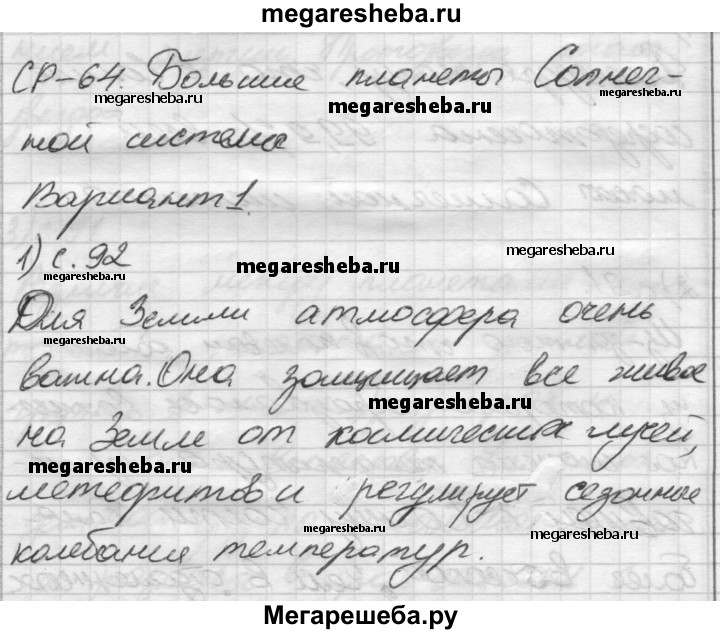 megaresheba.ru
СР-64. Большие планеты Солнеч-
megaresheba.ru
megaresheba.ru
ной система
Вариант 1.
1) с. 92
megaresheba.ru
megaresheba.ru
megaresheba.ru
Для Земли атмосфера очень
megaresheba.ru
важна. Она защищает все живое
megaresheba.ru
на Земле от космических лучей,
megaresheba.ru
метеоритов и регулирует сезонные
megaresheba.ru
megaresheba.ru
колебания температур.
megaresheba.ru
Мегарешеба.ру